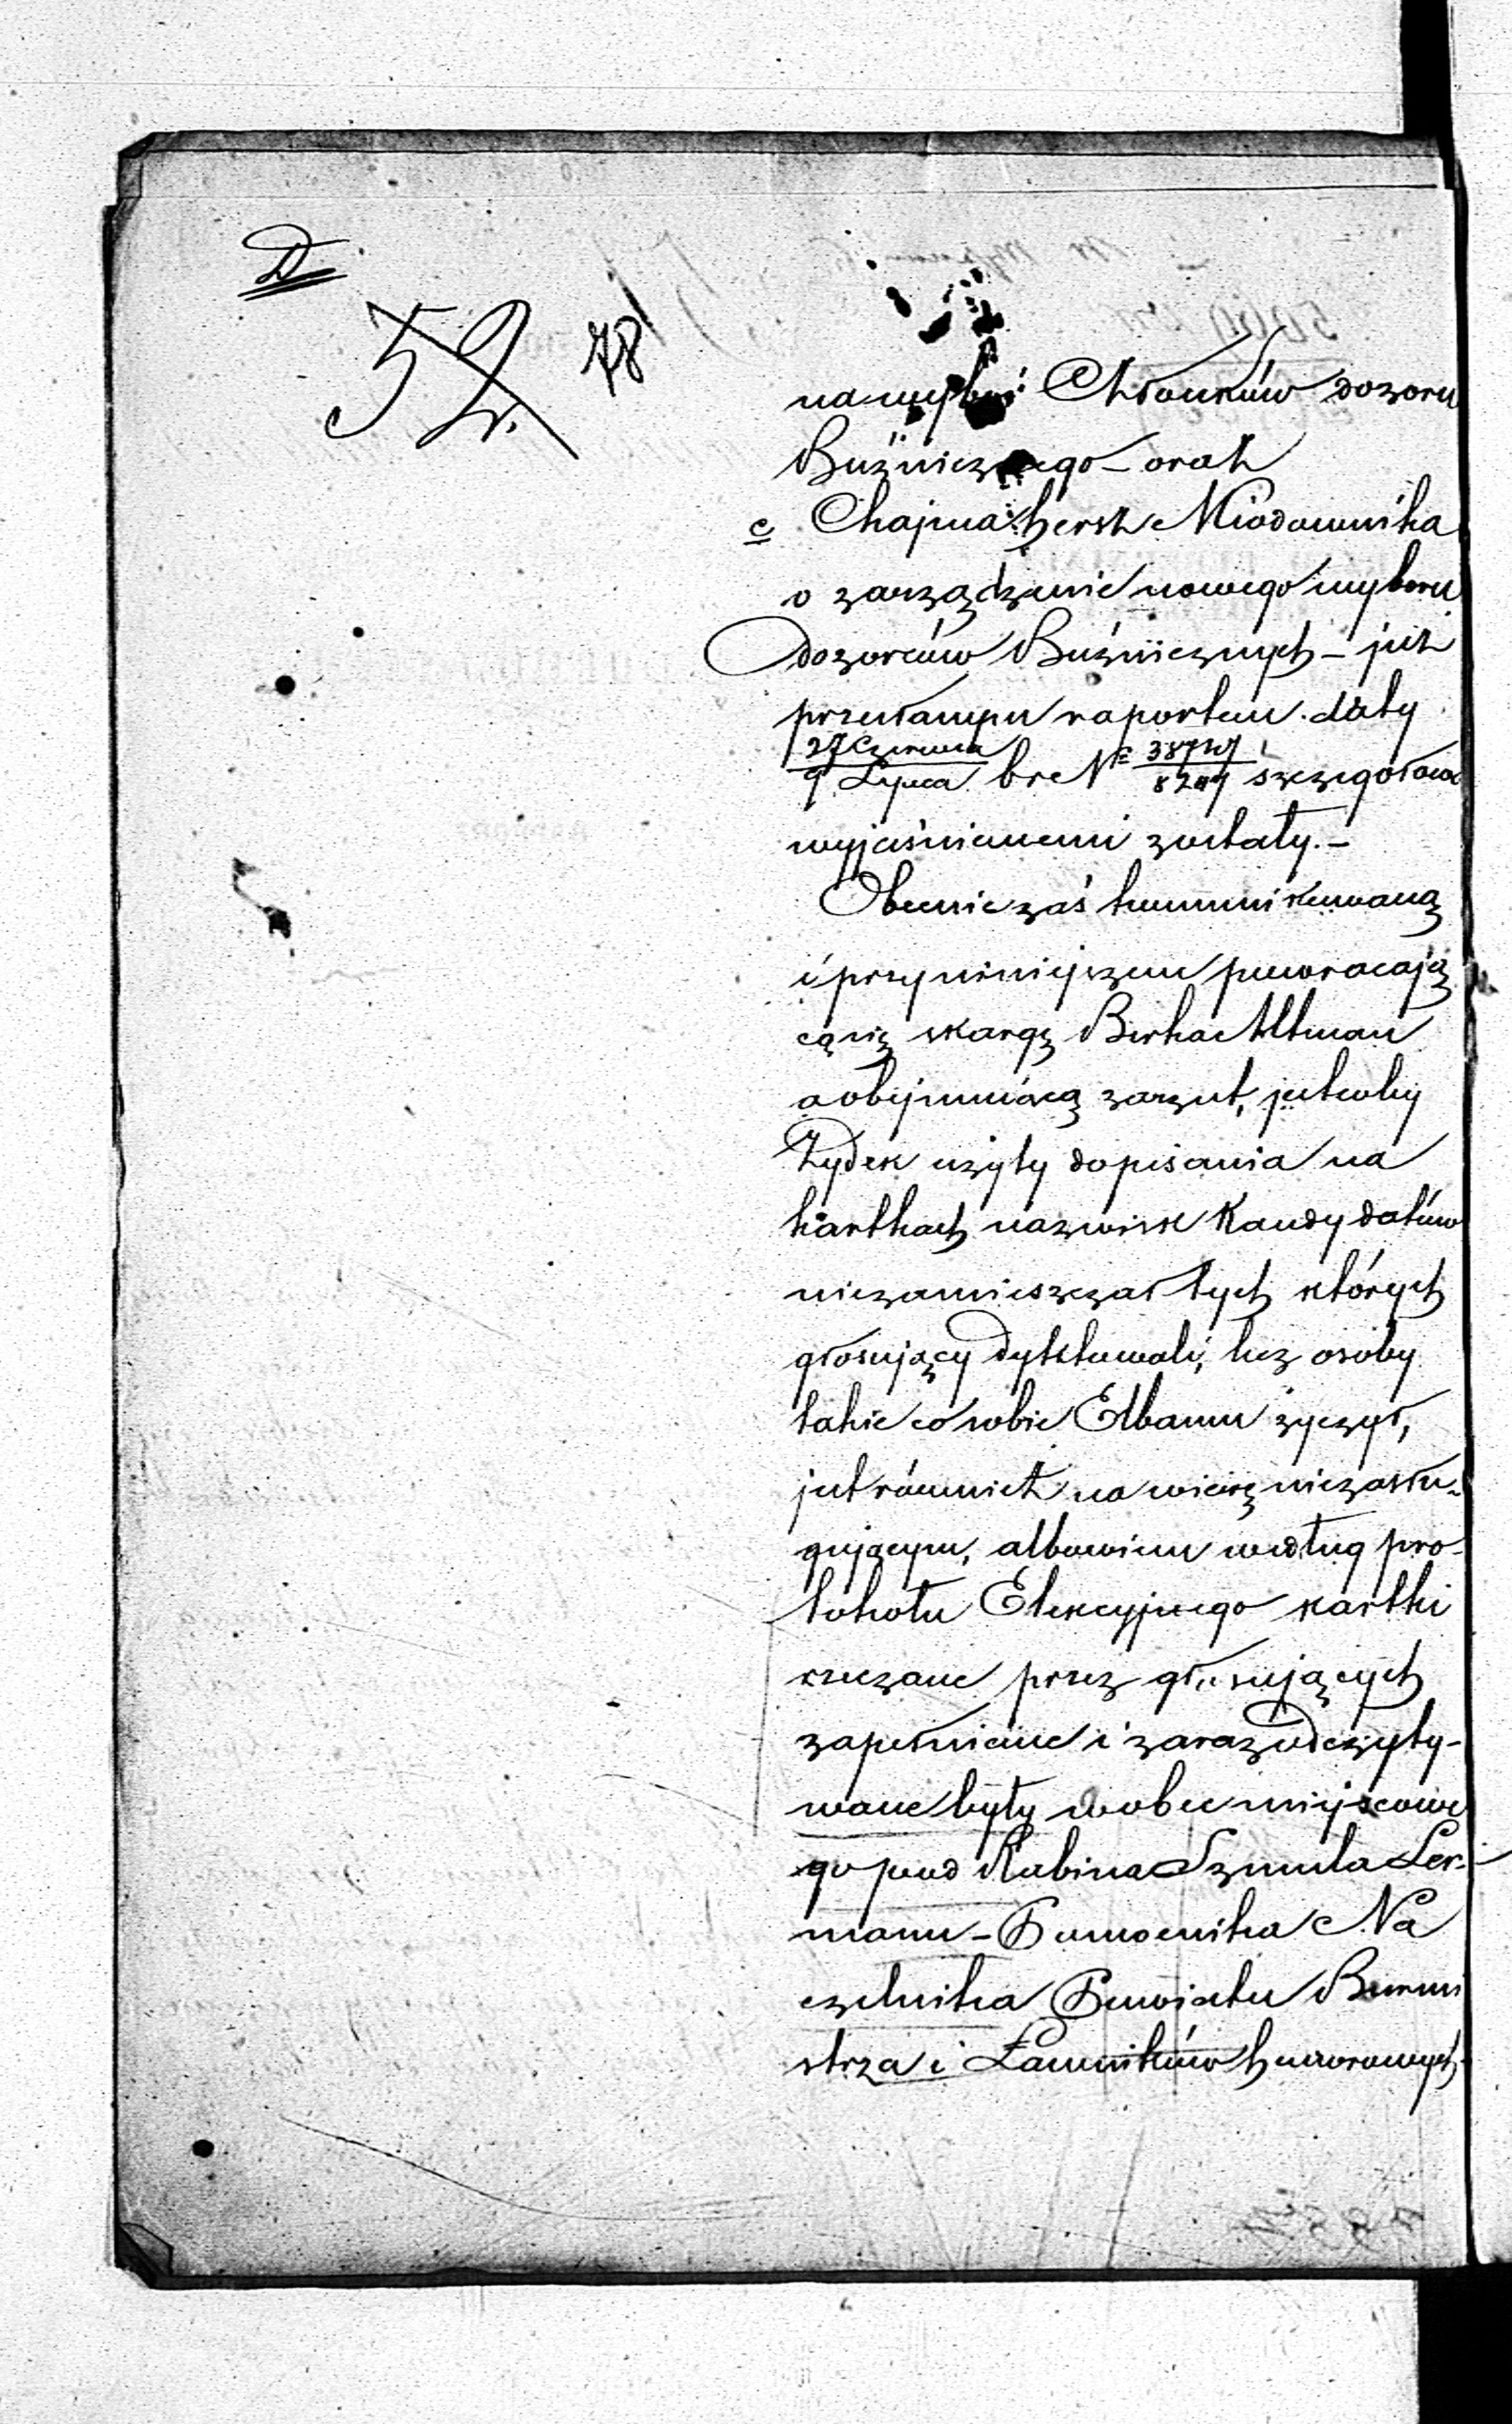 D
52.
78
na wybór Członków dozoru
Buźniczego – oraz
c Chajma Hersz Miodownika
o zarządzenie nowego wyboru
dozorców Buźnicznych – już
przesłanym raportem daty
27 Czerwca / 9 Lipca b r № szczegółowo
wyjaśnionemi zostały. –
Obecnie zaś kommunikowaną
i przy niniejszem powracają
cą się skargę Berka Altman
a obejmującą zarzut, jakoby
Żydek użyty do pisania na
kartkach nazwisk Kandydatów
niezamieszczał tych których
głosujący dyktowali, lecz osoby
takie co sobie Elbaum życzył,
jest również na wiarę niezasłu-
gującym, albowiem według pro-
tokołu Elekcyjnego kartki
rzeczone przez głosujących
zapełnione i zaraz odczyty-
wane były wobec miejscowe
go pod Rabina Szmula Ler-
mann – Pomocnika Na
czelnika Powiatu Burmi
strza i Ławników honorowych